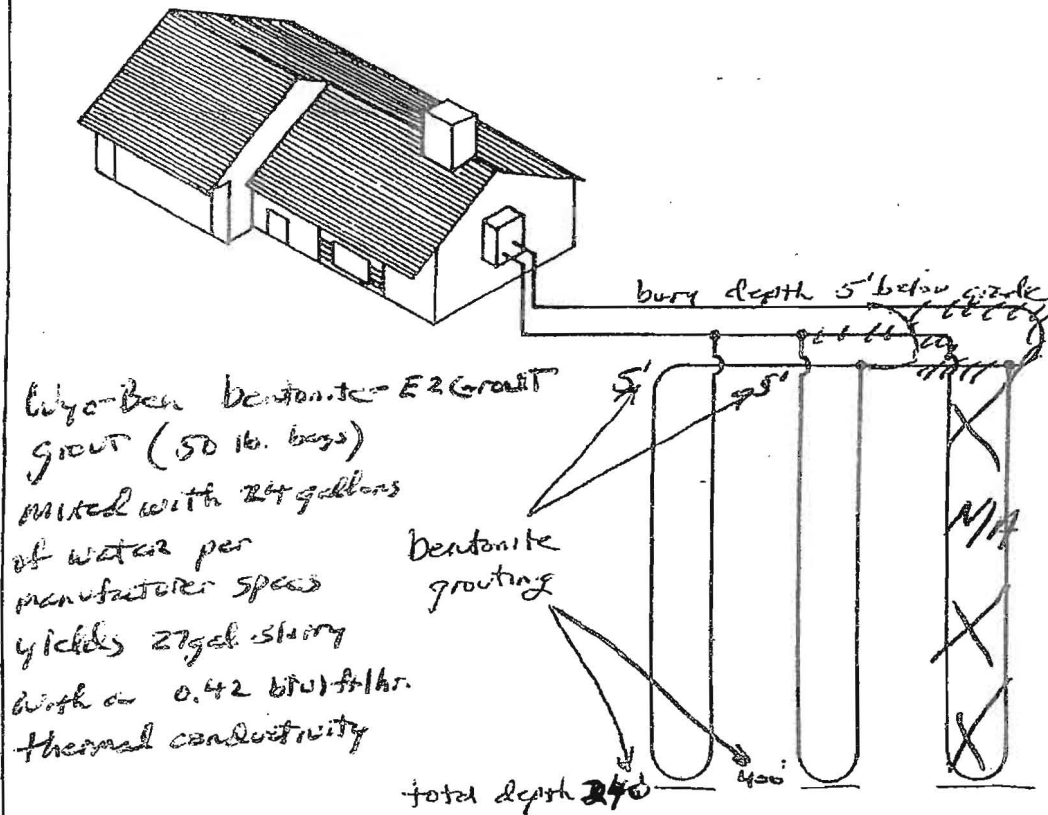 bury depth 5' below grade
5' 5'
Wyo-Ben bentonite - EZ Grout
grout (50 lb. bags)
mixed with 24 gallons
of water per
manufacturer specs
yields 27 gal slurry
with a 0.42 btu/ft/hr.
thermal conductivity
bentonite
grouting
N/A
total depth
400'